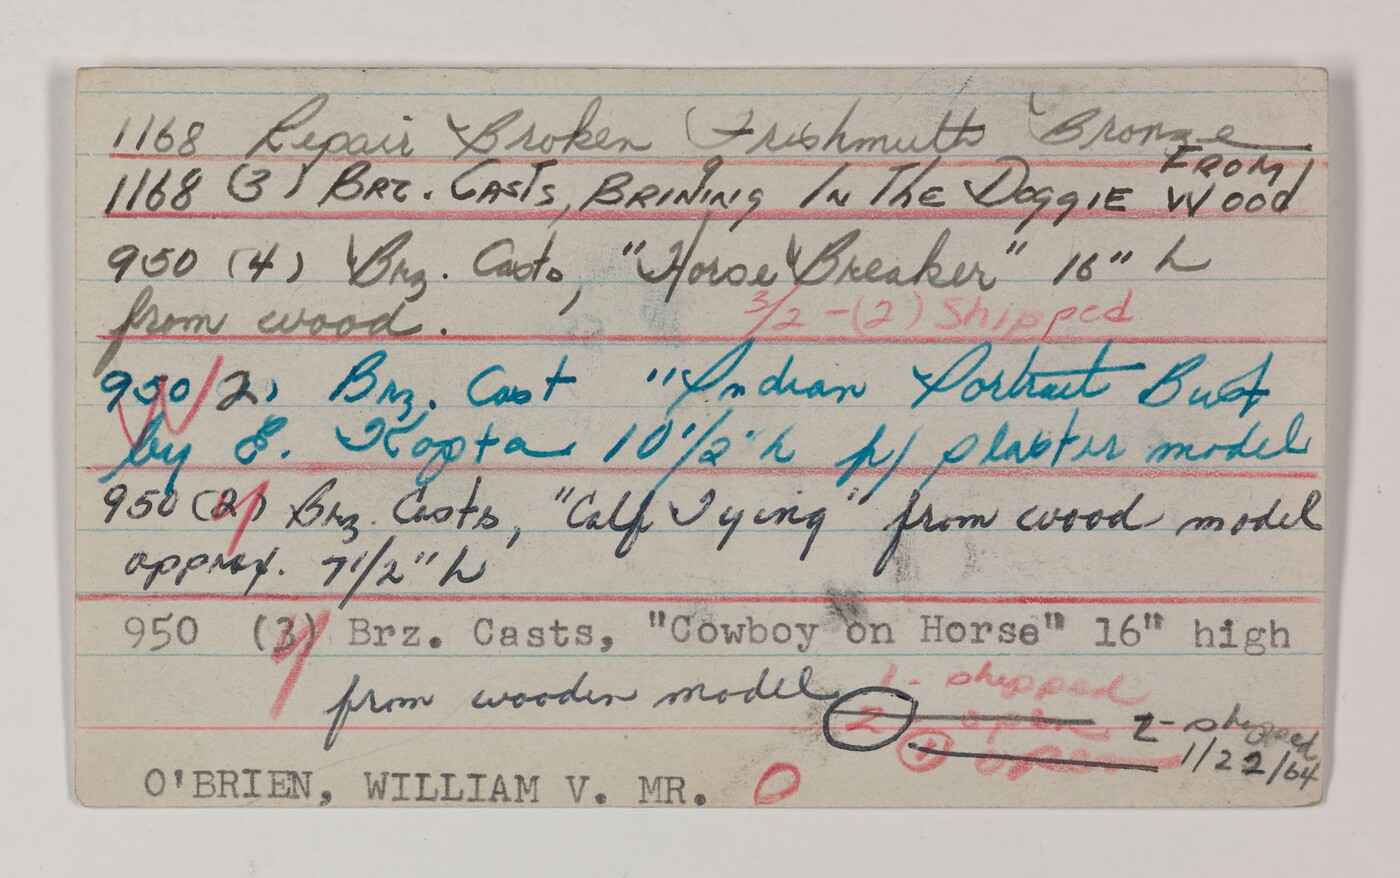 1168 Repair Broken Frishmuth Bronze
1168 (3) BRZ. CASTS, BRINING IN THE DOGGIE FROM WOOD
950 (4) Brz. Casts, "Horse Breaker" 16" h
from wood. 3/2 - (2) Shipped
950 (2) Brz. Cast "Indian Portrait Bust
by E. Kopta 10 1/2" h f/ plaster model
950 (2) Brz. Casts, "Calf Tying" from wood model
approx. 7 1/2" h
950 (3) Brz. Casts, "Cowboy on Horse" 16" high
from wooden model 1 - shipped
2 open 2 - shipped
1 open 1/22/64
O'BRIEN, WILLIAM V. MR. O